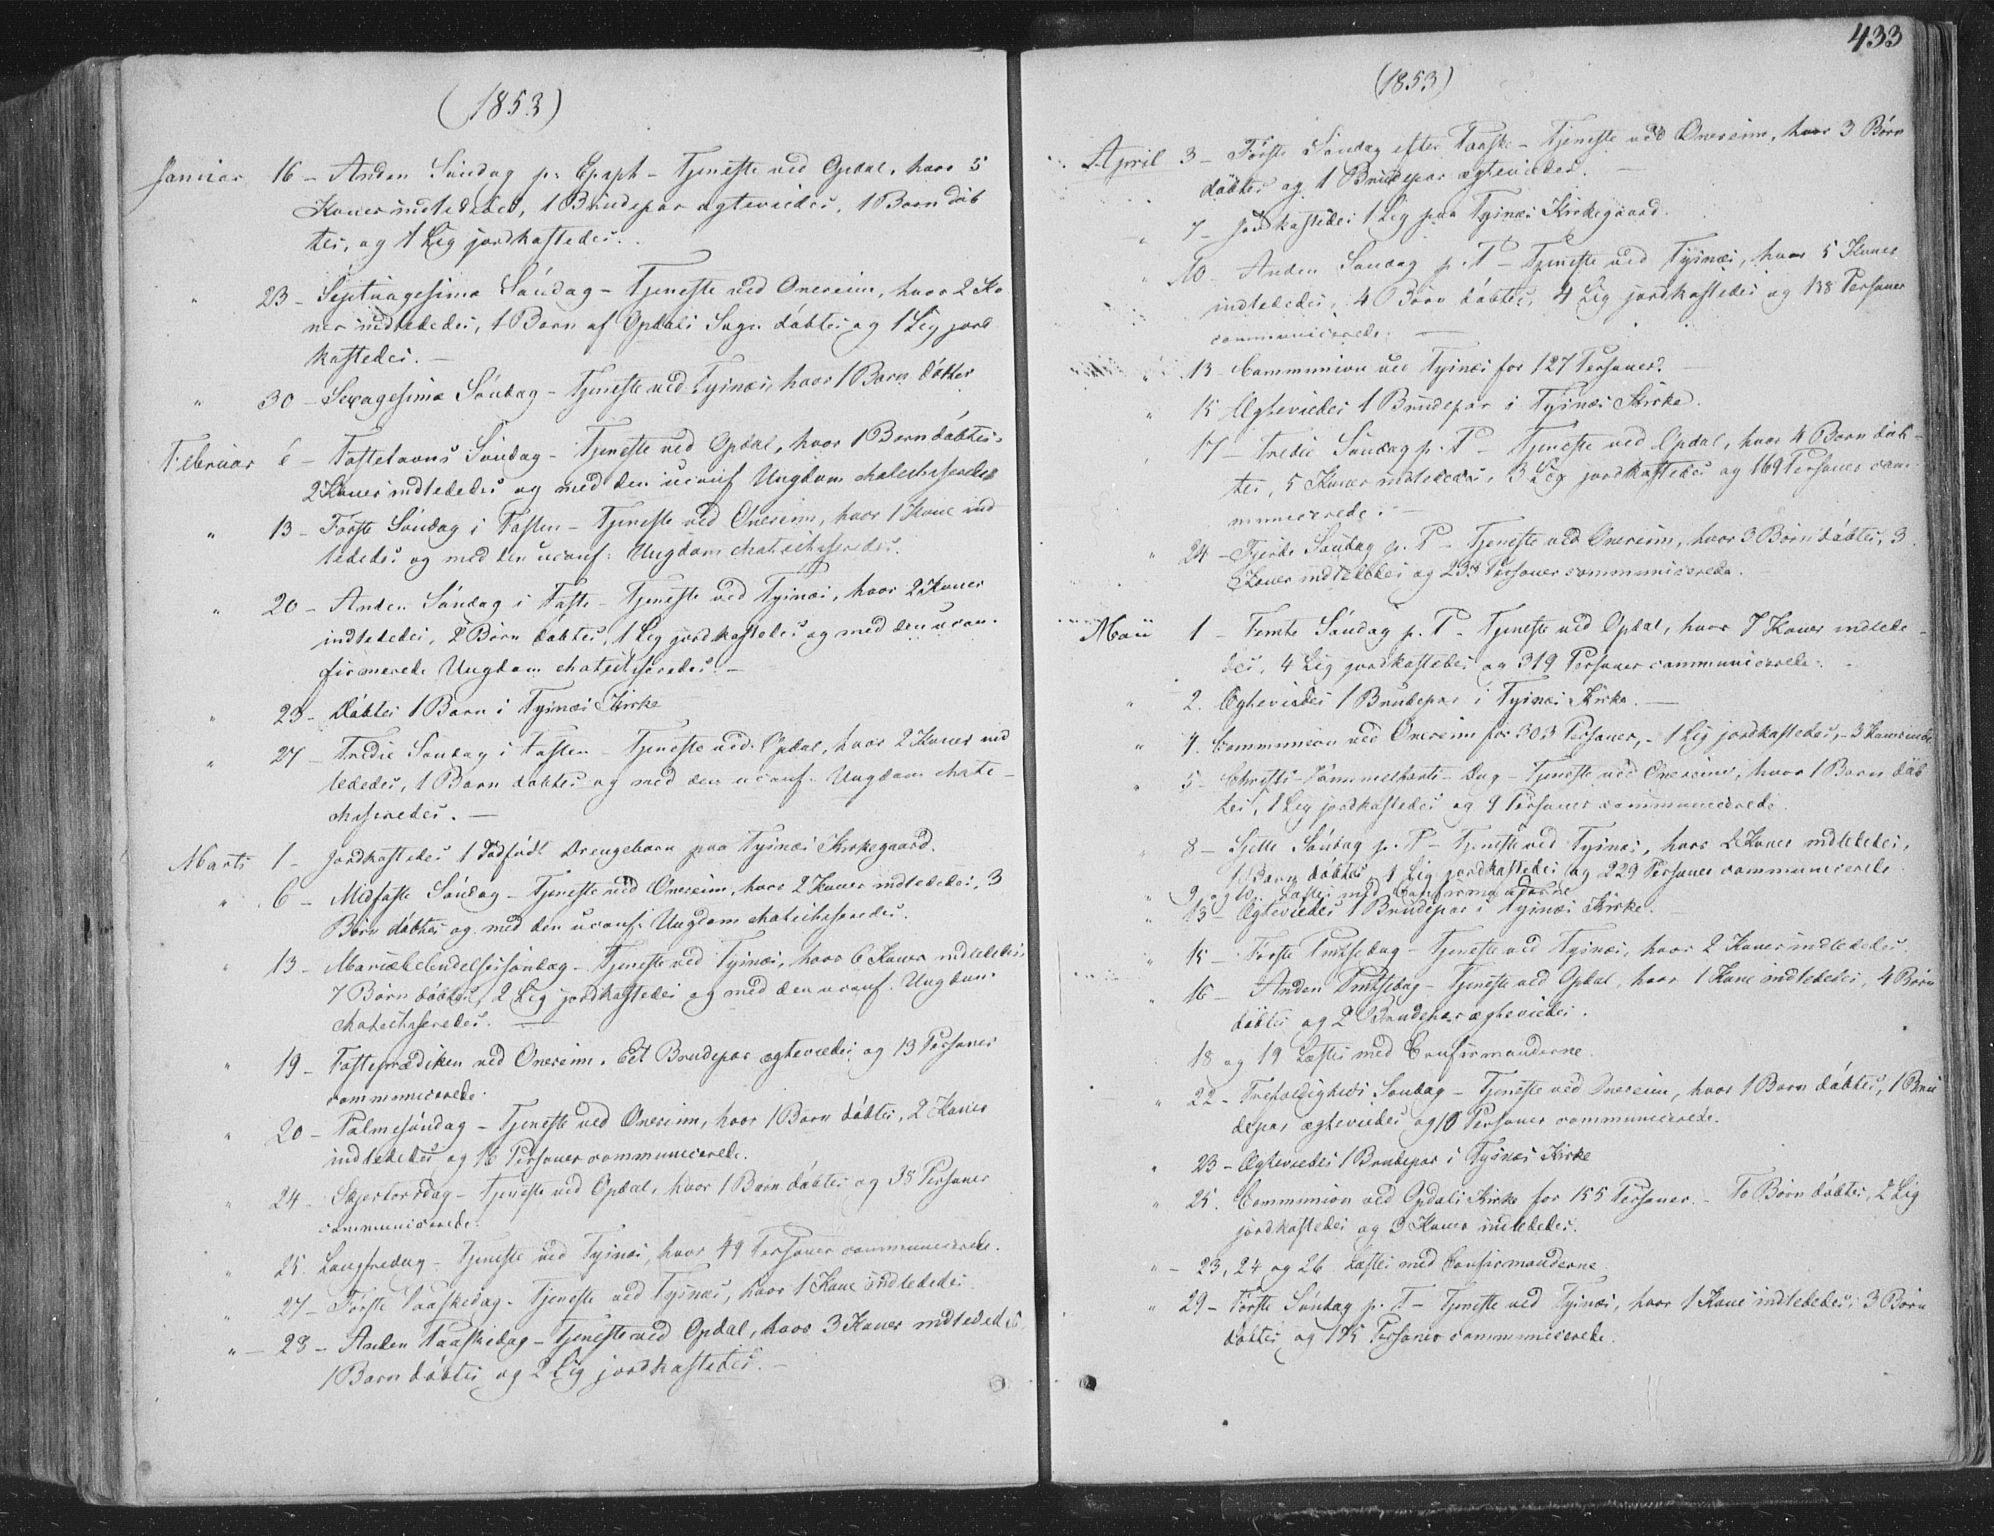 (1853)
Januar 16 – Anden Søndag p. Epiph – Tjeneste ved Opdal, hvor 5
Koner indlededes, 1 Brudepar ægteviedes, 1 Barn døb
tes, og 1 Lig jordkastedes.
" 23 – Septuagesima Søndag – Tjeneste ved Onereim, hvor 2 Ko
ner indlededes, 1 Barn af Opdals Sogn døbtes og 1 Lig jord
kastedes. –
" 30 – Sexagesima Søndag – Tjeneste ved Tysnæs, hvor 1 Barn døbtes
Februar 6 – Fastelavns Søndag – Tjeneste ved Opdal, hvor 1 Barn døbtes,
2 Koner indlededes og med den uconf Ungdom chatechiseredes
" 13 – Første Søndag i Fasten – Tjeneste ved Onereim, hvor 1 Kone ind
lededes og med den uconf: Ungdom chatechiseredes.
" 20 – Anden Søndag i Faste – Tjeneste ved Tysnæs, hvor 2 Koner
indlededes, 2 Børn døbtes, 1 Lig jordkastedes og med den ucon-
firmerede Ungdom chatechiseredes. –
" 23 – Døbtes 1 Barn i Tysnæs Kirke
" 27 – Tredie Søndag i Fasten – Tjeneste ved Opdal, hvor 2 Koner ind
lededes, 1 Barn døbtes og med den uconf. Ungdom chate-
chiseredes. –
Marts 1 – Jordkastedes 1 dødfødt Drengebarn paa Tysnæs Kirkegaard.
" 6 – Midfaste Søndag – Tjeneste ved Onereim, hvor 2 Koner indlededes, 3
Børn døbtes og med den uconf. Ungdom chatechiseredes.
" 13 – Mariæbebudelsessøndag – Tjeneste ved Tysnæs, hvor 6 Koner indlededes,
7 Børn døbtes, 2 Lig jordkastedes og med den uconf. Ungdom
chatechiseredes. –
" 19 – Fasteprædiken ved Onereim. Eet Brudepar ægteviedes og 13 Personer
communicerede.
" 20 – Palmesøndag – Tjeneste ved Onereim, hvor 1 Barn døbtes, 2 Koner
indlededes og 16 Personer communicerede.
" 24 – Skjertorsdag – Tjeneste ved Opdal, hvor 1 Barn døbtes og 38 Personer
communicerede.
" 25. Langfredag – Tjeneste ved Tysnæs, hvor 49 Personer communicerede.
" 27 – Første Paaskedag – Tjeneste ved Tysnæs, hvor 1 Kone indlededes
" – 28 – Anden Paaskedag – Tjeneste ved Opdal, hvor 3 Koner indlededes
1 Barn døbtes og 2 Lig jordkastedes. –
433
(1853)
April 3 – Første Søndag efter Paaske – Tjeneste ved Onereim, hvor 3 Børn
døbtes og 1 Brudepar ægteviedes. –
" 7 – Jordkastedes 1 Lig paa Tysnæs Kirkegaard.
" 10 – Anden Søndag p. P – Tjeneste ved Tysnæs, hvor 5 Koner
indlededes, 4 Børn døbtes, 4 Lig jordkastedes og 138 Personer
communicerede. –
" 13 – Communion ved Tysnæs for 127 Personer. –
" 15 Ægteviedes 1 Brudepar i Tysnæs Kirke.
" 17 – Tredie Søndag p. P – Tjeneste ved Opdal, hvor 4 Børn døb-
tes, 5 Koner indlededes, 3 Lig jordkastedes og 169 Personer com-
municerede. –
" 24 – Fjerde Søndag p. P – Tjeneste ved Onereim, hvor 3 Børn døbtes, 3
Koner indlededes og Personer communicerede. –
Maii 1 – Femte Søndag p. P – Tjeneste ved Opdal, hvor 7 Koner indlede-
des, 4 Lig jordkastedes og 319 Personer communicerede. –
" 2. Ægteviedes 1 Brudepar i Tysnæs Kirke. –
" 4. Communion ved Onereim for 303 Personer, – 1 Lig jordkastedes, – 3 Koner
" 5 – Christi-Himmelfarts-Dag – Tjeneste ved Onereim, hvor 1 Barn døb
tes, 1 Lig jordkastedes og 9 Personer communicerede
" 8 – Sjette Søndag p. P – Tjeneste ved Tysnæs, hvor 2 Koner indlededes,
1 Barn døbtes, 1 Lig jordkastedes og 229 Personer communicerede
" 9 og 10. Læstes med Confirmanderne
" 13 – Ægteviedes 1 Brudepar i Tysnæs Kirke. –
" 15 – Første Pintsedag – Tjeneste ved Tysnæs, hvor 2 Koner indlededes.
" 16 – Anden Pintsedag – Tjeneste ved Opdal, hvor 1 Kone indlededes, 4 Børn
døbtes og 2 Brudepar ægteviedes.
18 og 19 Læstes med Confirmanderne.
" 22 – Trefoldigheds Søndag – Tjeneste ved Onereim, hvor 1 Barn døbtes, 1 Bru
depar ægteviedes og 10 Personer communicerede.
" 23 – Ægteviedes 1 Brudepar i Tysnæs Kirke
" 25. Communion ved Opdals Kirke for 155 Personer. – To Børn døbtes, 2 Lig
jordkastedes og 3 Koner indlededes.
" – 23, 24 og 26 Læstes med Confirmanderne.
" 29 – Første Søndag p. T – Tjeneste ved Tysnæs, hvor 1 Kone indlededes, 3 Børn
døbtes og Personer communicerede.